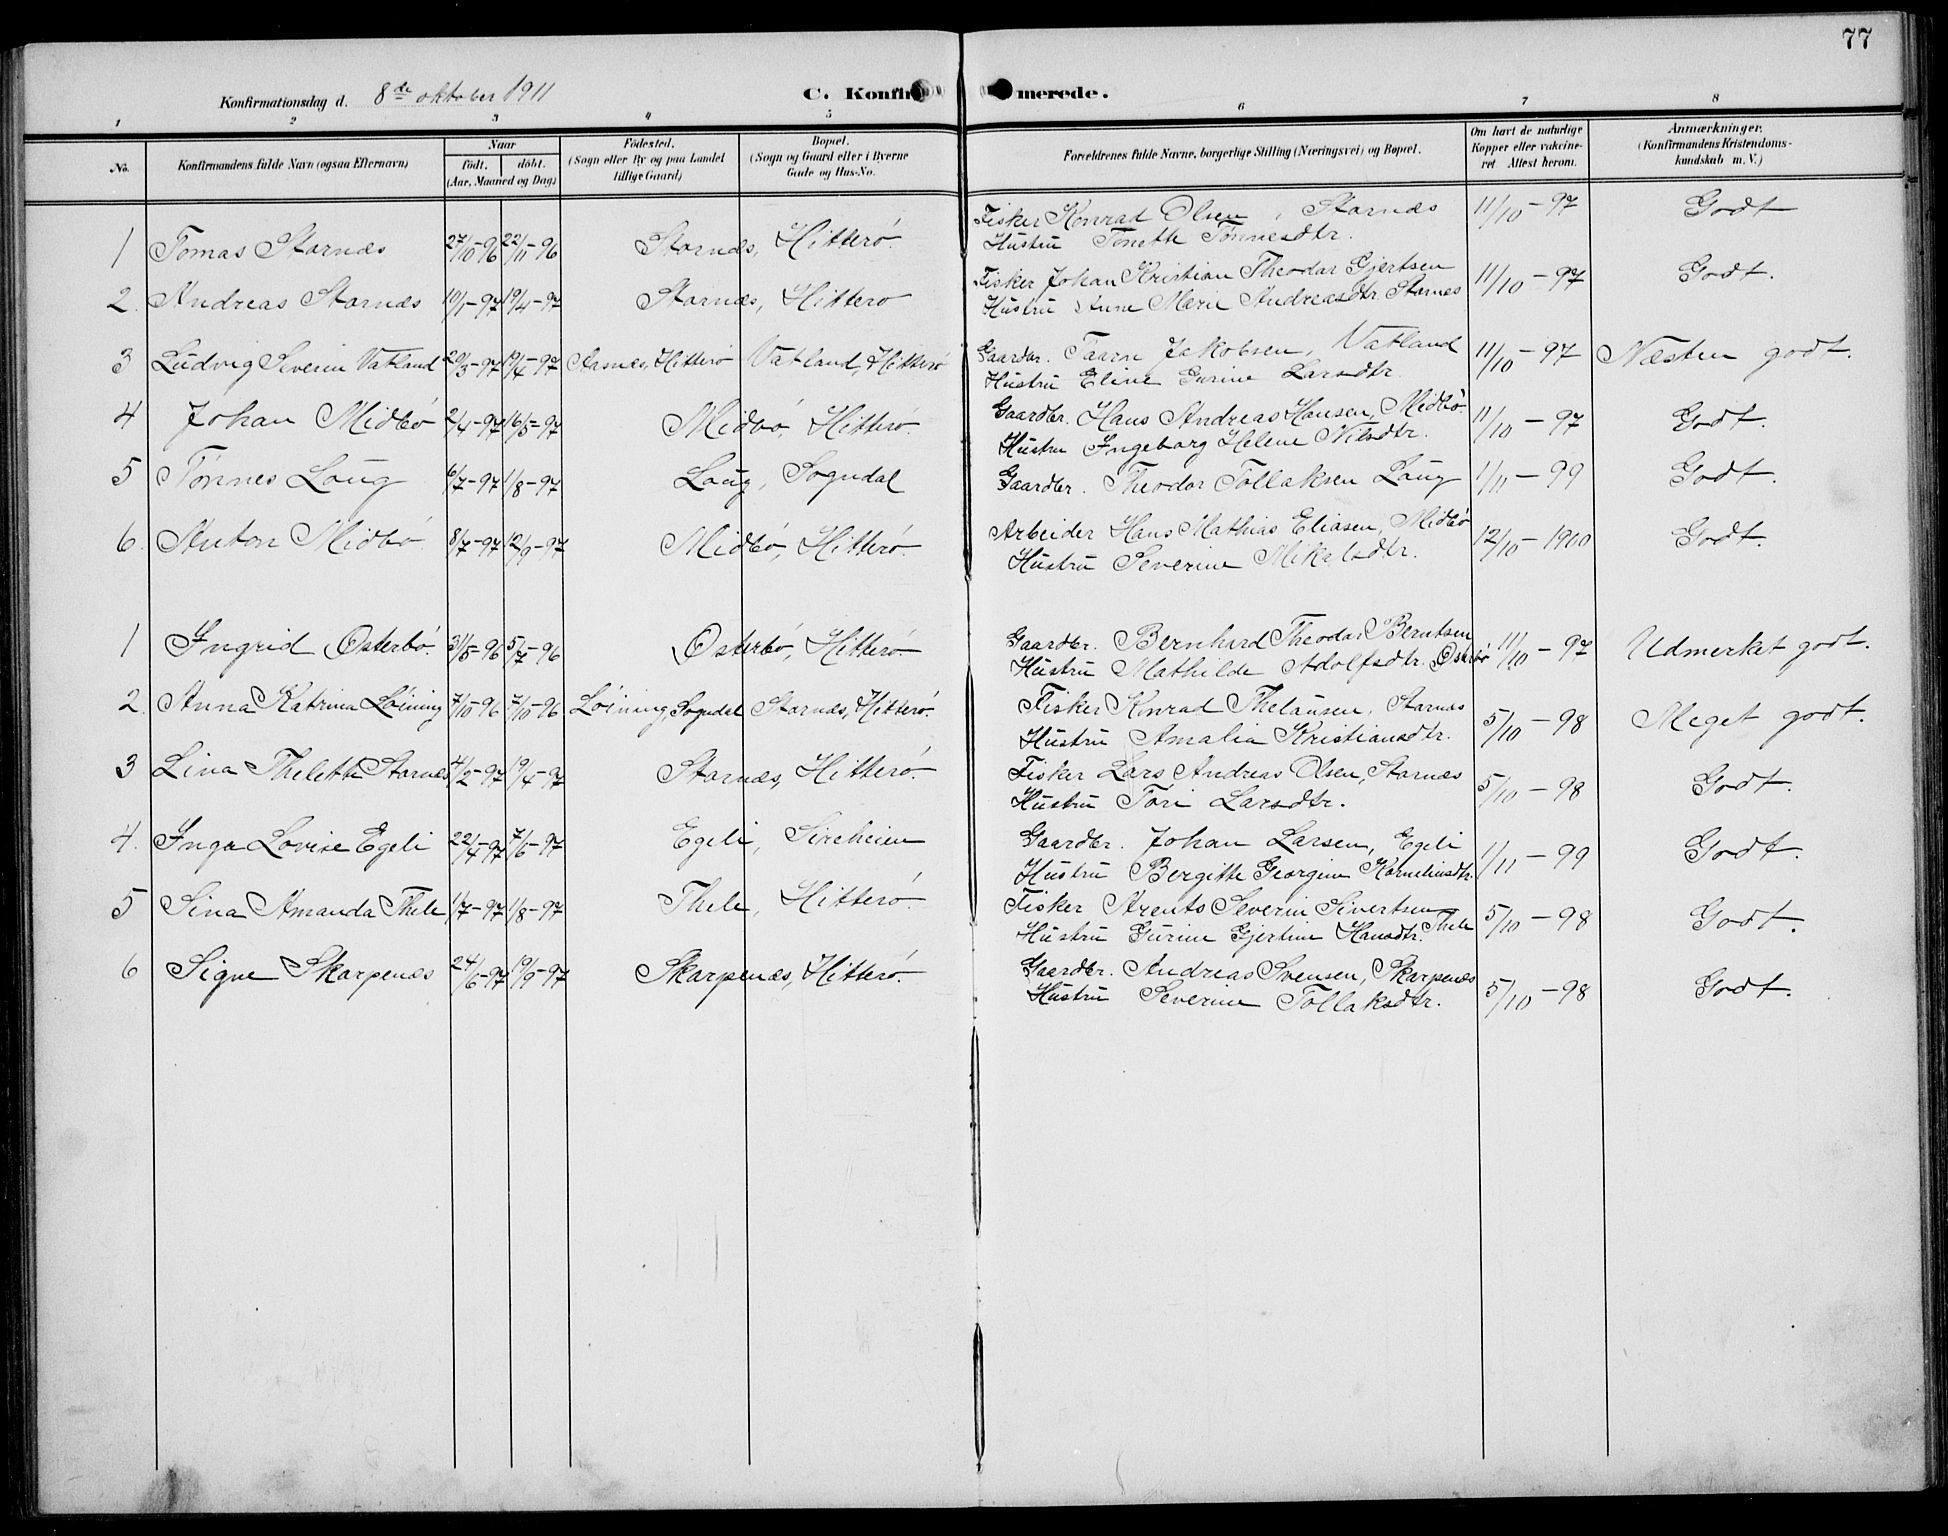 77
Konfirmationsdag d. 8de oktober 1911 C. Konfirmerede.
1 2 3 4 5 6 7 8
No. Konfirmandens fulde Navn (ogsaa Efternavn) Naar født. døbt. (Aar, Maaned og Dag) Fødested. (Sogn eller By og paa Landet tillige Gaard) Bopæl. (Sogn og Gaard eller i Byerne Gade og Hus-No. Forældrenes fulde Navne, borgerlige Stilling (Næringsvei) og Bopæl. Om havt de naturlige Kopper eller vakcineret Attest herom. Anmærkninger. (Konfirmandens Kristendomskundskab m. V.)
1 Tomas Starnæs 27/10-96 22/11-96 Starnæs, Hitterø Fisker Konrad Olsen, Starnæs 11/10-97 Godt
Hustru Tonette Tønnesdtr.
2. Andreas Starnæs 10/1-97 19/4-97 Starnæs, Hitterø Fisker Johan Kristian Theodor Gjertsen 11/10-97 Godt.
Hustru Anne Marie Andreasdtr. Starnæs
3 Ludvig Severin Vatland 20/3-97 19/4-97 Aasnæs, Hitterø Vatland, Hitterø Gaardbr. Taarn Jakobsen, Vatland 11/10-97 Næsten godt.
Hustru Eline Gurine Larsdtr.
4 Johan Midbø 2/4-97 16/5-97 Midbø, Hitterø. Gaardbr. Hans Andreas Hansen, Midbø. 11/10-97 Godt.
Hustru Ingeborg Helene Nilsdtr.
5 Tønnes Loug 6/7-97 1/8-97 Loug, Sogndal Gaardbr. Theodor Tollaksen Loug 1/11-99 Godt.
6. Anton Midbø 8/7-97 12/9-97 Midbø, Hitterø Arbeider Hans Mathias Eliasen, Midbø 12/10-1900 Godt.
Hustru Severine Mikalsdtr.
1 Ingrid Østerbø. 31/5-96 5/7-96 Østerbø, Hitterø. Gaardbr. Bernhard Theodor Berntsen 11/10-97 Udmerket godt.
Hustru Mathilde Adolfsdtr. Østerbø
2. Anna Katrina Løining 7/10-96 7/10-96 Løining, Sogndal Starnæs, Hitterø. Fisker Konrad Thelausen, Starnæs 5/10-98 Meget godt.
Hustru Amalia Kristiansdtr.
3 Lina Thelette Starnæs 4/2-97 19/4-97 Starnæs, Hitterø. Fisker Lars Andreas Olsen, Starnæs 5/10-98 Godt.
Hustru Tori Larsdtr.
4. Inga Lovise Egeli 22/4-97 7/6-97 Egeli, Sireheien Gaardbr. Johan Larsen, Egeli 1/11-99 Godt.
Hustru Bergitte Georgine Korneliusdtr.
5 Sina Amanda Thele 1/7-97 1/8-97 Thele, Hitterø. Fisker Arents Severin Sivertsen 5/10-98 Godt.
Hustru Gurine Gjertine Hansdtr. Thele
6 Signe Skarpenæs 24/6-97 19/9-97 Skarpenæs, Hitterø. Gaardbr. Andreas Svensen, Skarpenæs 5/10-98 Godt.
Hustru Severine Tollaksdtr.